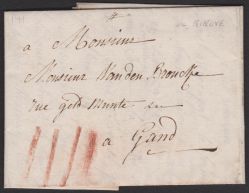 1741
de NINOVE
a Monsieur
Monsieur Vanden Broucke
rue geld munte
a Gand